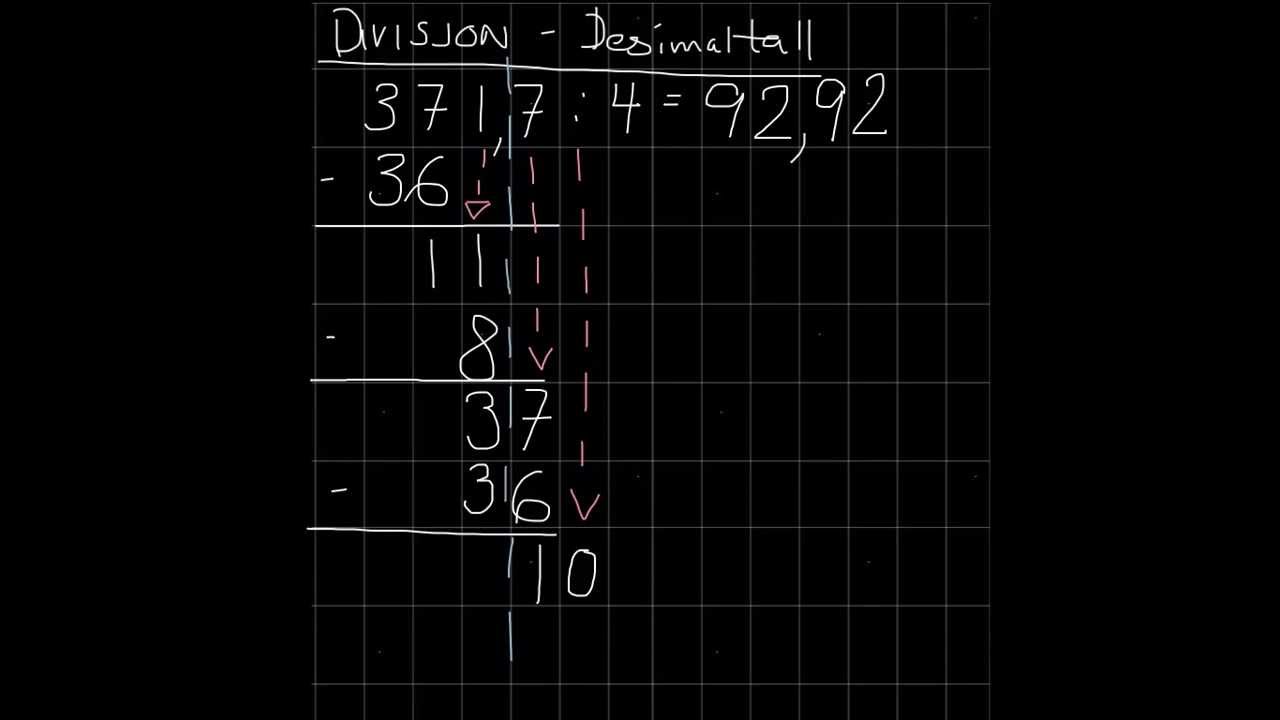 DIVISJON - Desimaltall
371,7 : 4 = 92,92
- 36
11
- 8
37
- 36
10